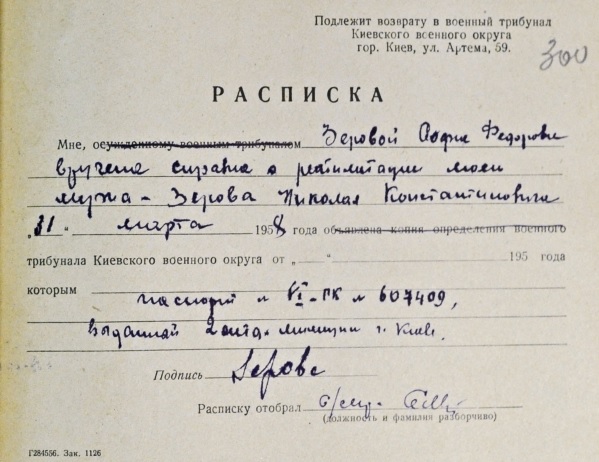 Подлежит возврату в военный трибунал
Киевского военного округа
гор. Киев, ул. Артема, 59.
300
РАСПИСКА
Мне, осужденному военным трибуналом Зеровой Софие Федоровне
вручена справка о реабилитации моего
мужа – Зерова Николая Константиновича
„31" марта 1958 года объявлена копия определения военного
трибунала Киевского военного округа от „ " 195 года
которым
паспорт № VI-ПК № 607409,
выданный 2 отд. милиции г. Киев.
Подпись Зерова
Расписку отобрал
(должность и фамилия разборчиво)
Г284556. Зак. 1126